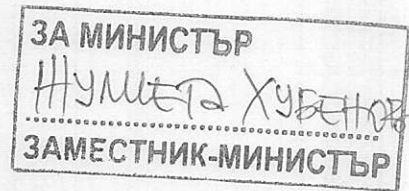 ЗА МИНИСТЪР
ЖУЛИЕТА ХУБЕНОВА
ЗАМЕСТНИК-МИНИСТЪР